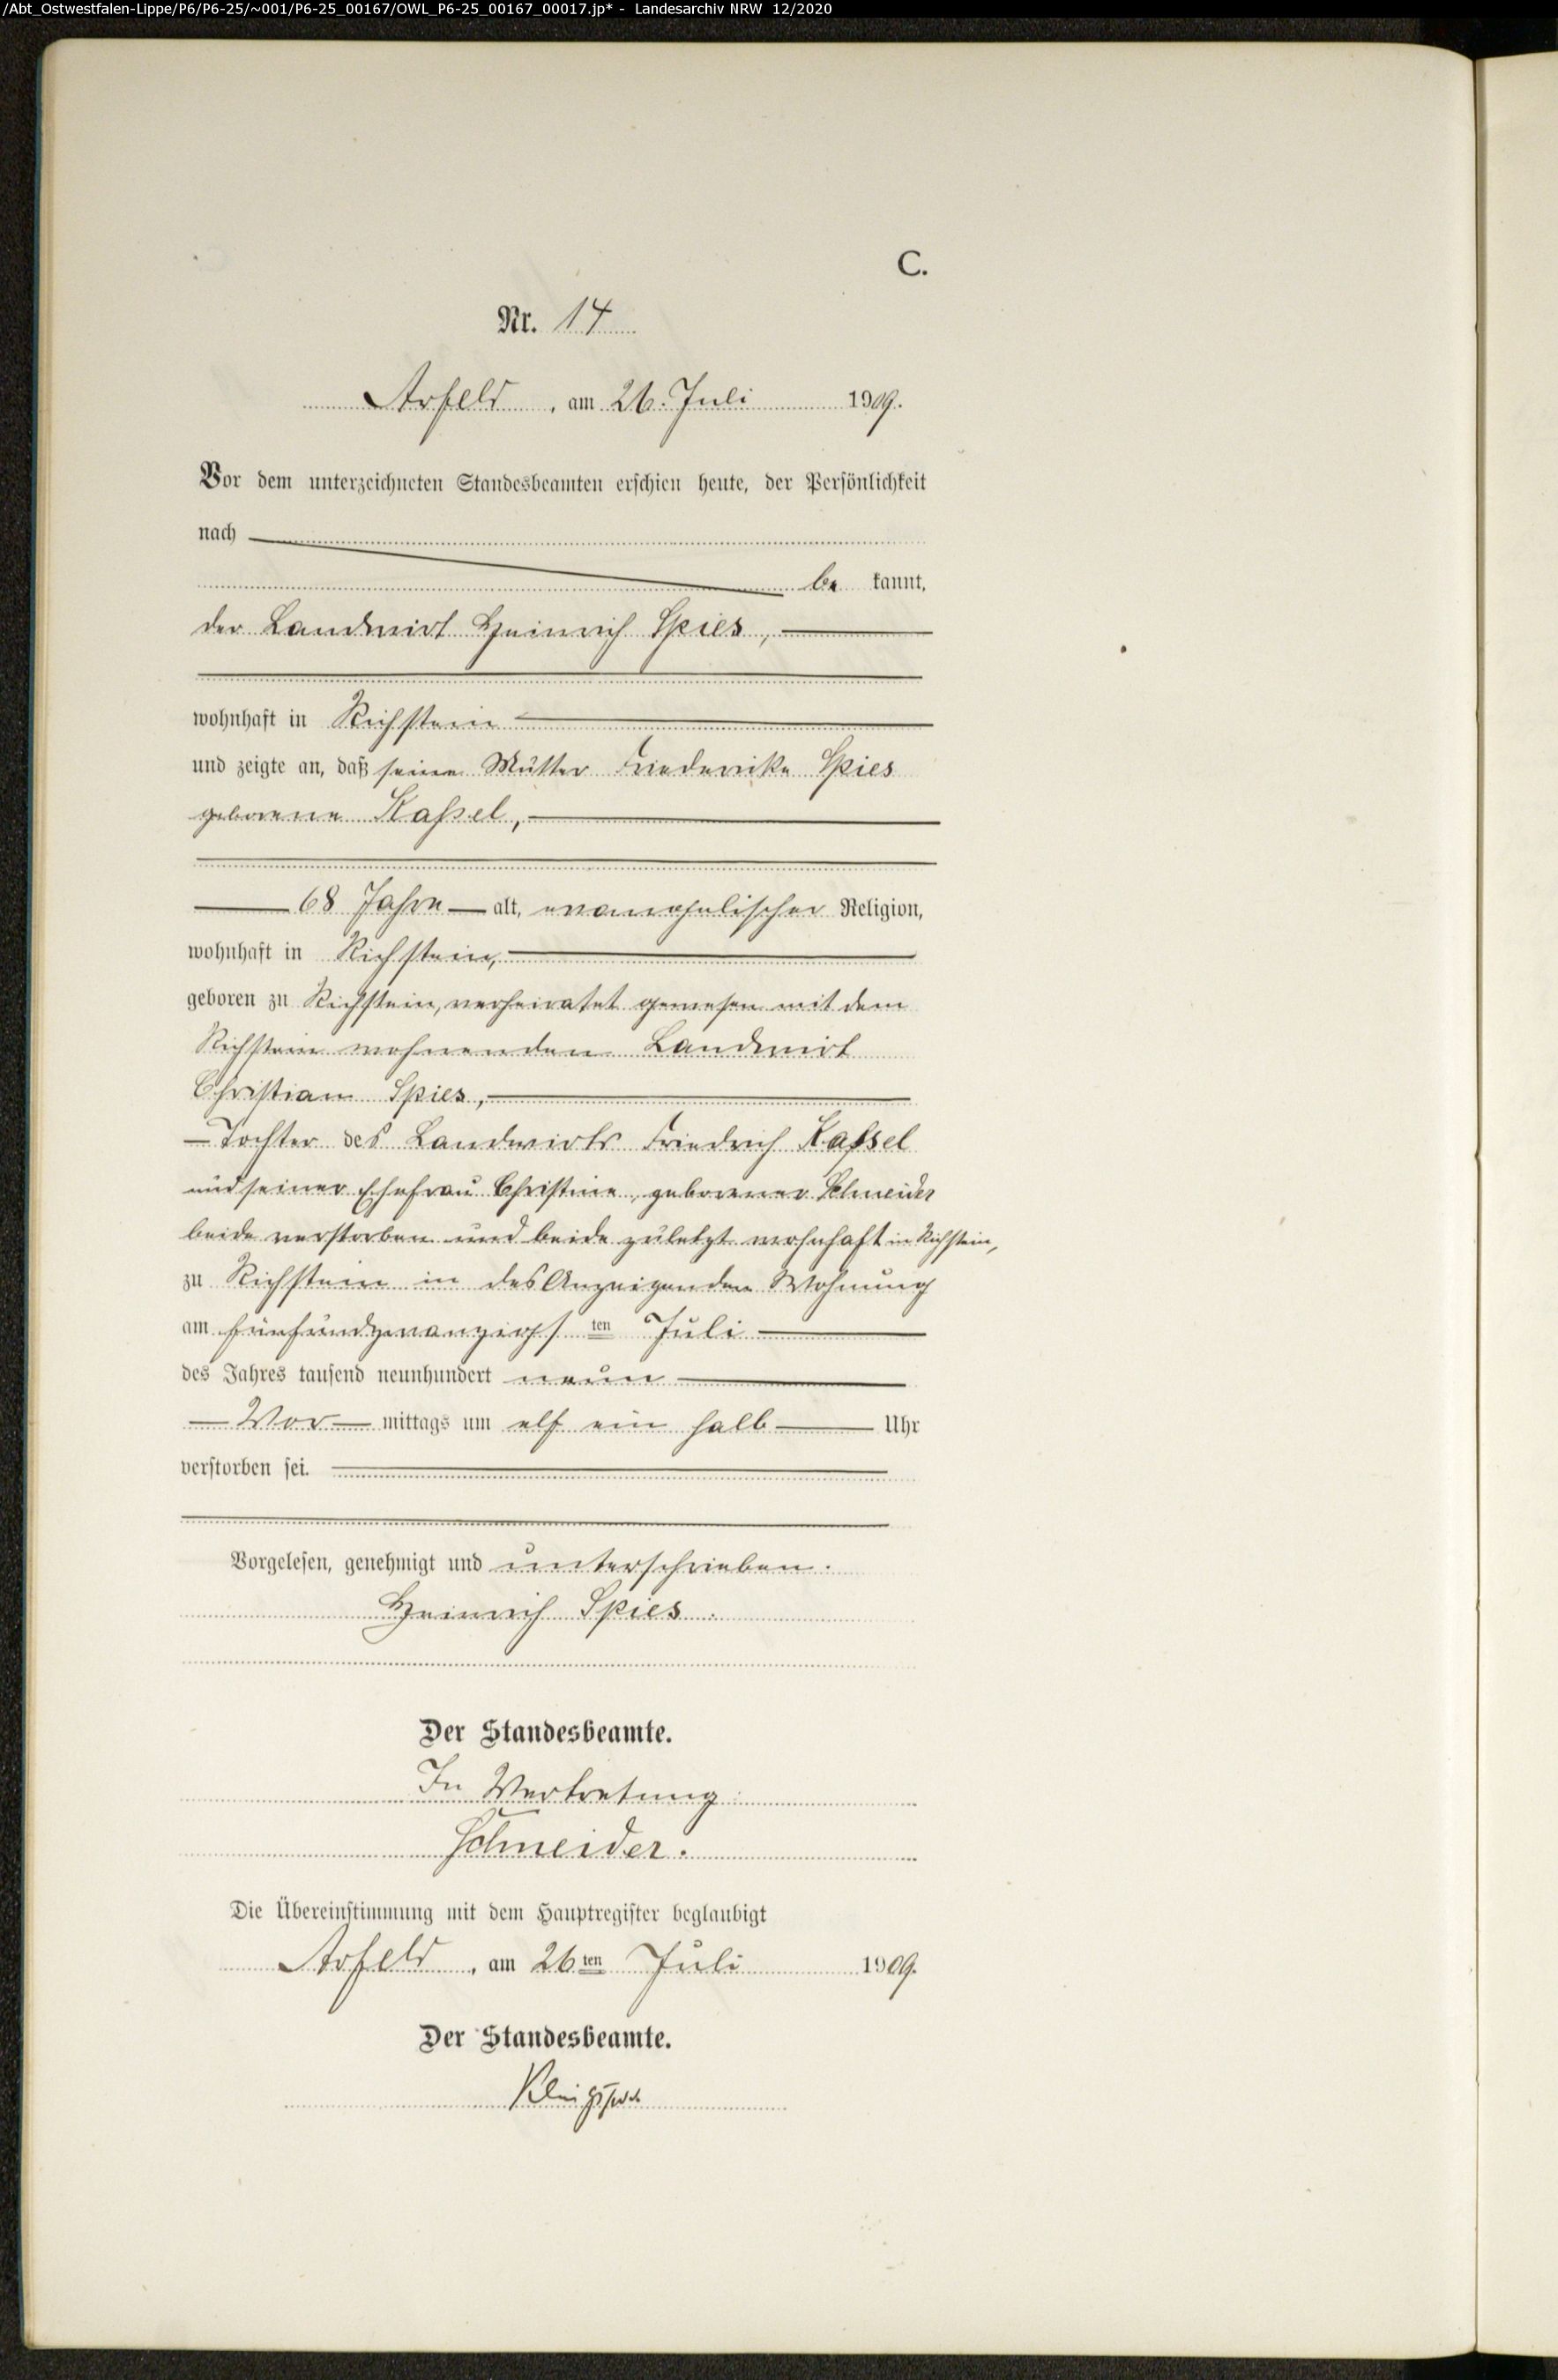 /Abt_Ostwestfalen-Lippe/P6/P6-25/~001/P6-25_00167/OWL_P6-25_00167_00017.jp* - Landesarchiv NRW 12/2020
C.
Nr. 14
Arfeld, am 26. Juli 1909.
Vor dem unterzeichneten Standesbeamten erschien heute, der Persönlichkeit
nach
be kannt,
der Landwirt Heinrich Spies,
wohnhaft in Richstein
und zeigte an, daß seine Mutter Friederike Spies
geborene Kassel,
68 Jahre alt, evangelischer Religion,
wohnhaft in Richstein,
geboren zu Richstein, verheiratet gewesen mit dem
Richstein wohnenden Landwirt
Christian Spies,
Tochter des Landwirts Friedrich Kassel
und seiner Ehefrau Christine, geborener Schneider
beide verstorben und beide zuletzt wohnhaft in Richstein,
zu Richstein in des Anzeigenden Wohnung
am fünfundzwanzigs ten Juli
des Jahres tausend neunhundert neun
Vor mittags um elf ein halb Uhr
verstorben sei.
Vorgelesen, genehmigt und unterschrieben.
Heinrich Spies.
Der Standesbeamte.
In Vertretung
Schneider.
Die Übereinstimmung mit dem Hauptregister beglaubigt
Arfeld, am 26ten Juli 1909.
Der Standesbeamte.